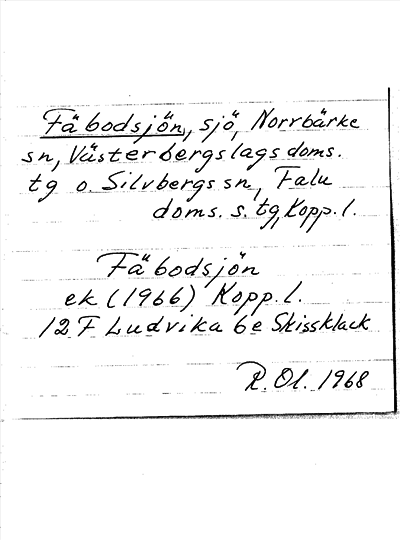 Fäbodsjön, sjö, Norrbärke
sn, Västerbergslags doms.
tg o. Silvbergs sn, Falu
doms. s. tg, Kopp. l.
Fäbodsjön
ek (1966) Kopp. l.
12 F Ludvika 6e Skissklack
R. Ol. 1968